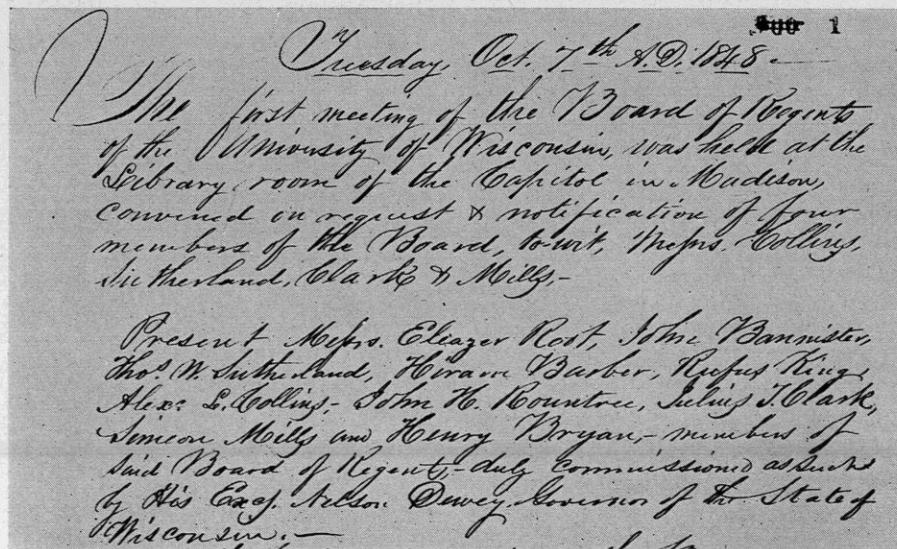 1
Tuesday, Oct. 7th A.D. 1848.
The first meeting of the Board of Regents
of the University of Wisconsin, was held at the
Library room of the Capitol in Madison,
convened on request & notification of four
members of the Board, to wit, Messrs. Collins,
Sutherland, Clark & Mills,-
Present Messrs. Eleazer Root, John Bannister,
Thos. W. Sutherland, Hiram Barber, Rufus King,
Alexr. L. Collins,- John H. Rountree, Julius T. Clark,
Simeon Mills and Henry Bryan,- members of
said Board of Regents,- duly commissioned as such
by His Excy. Nelson Dewey Governor of the State of
Wisconsin.-